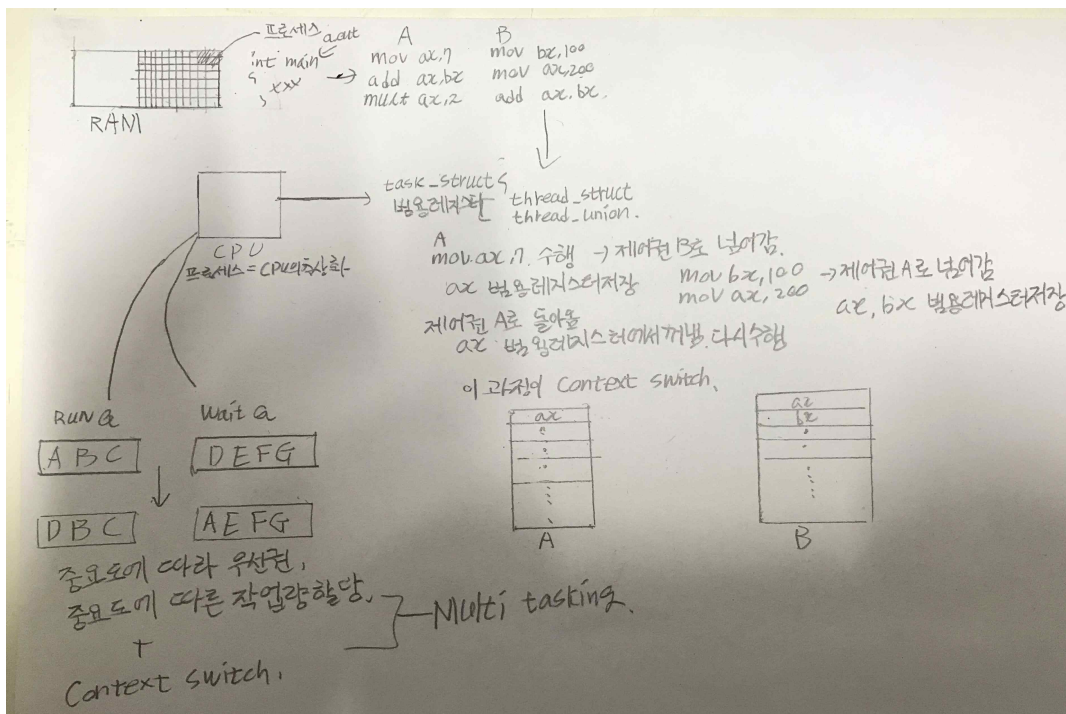 프로세스 a.out
int main
{
xxx
}
RAM
A
mov ax,7
add ax,bx
mult ax,2
B
mov bx,100
mov ax,200
add ax,bx.
CPU
프로세스 = CPU의추상화
task_struct {
범용레지스터
thread_struct
thread_union.
A
mov ax,7. 수행 → 제어권 B로 넘어감.
ax 범용레지스터저장
mov bx,100 → 제어권 A로 넘어감
mov ax,200
ax, bx 범용레지스터저장
제어권 A로 돌아옴
ax 범용레지스터에서꺼냄. 다시수행
이 과정이 Context switch.
RUN Q
A B C
Wait Q
D E F G
D B C
A E F G
ax
A
ax
bx
B
중요도에 따라 우선권,
중요도에 따른 작업량할당,
+
Context switch,
Multi tasking.